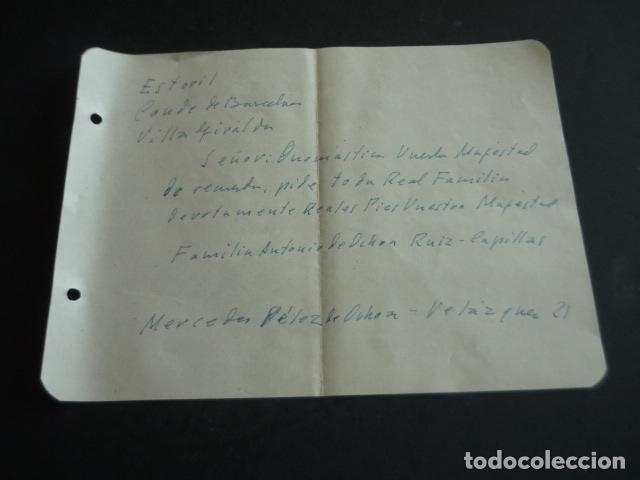 Estoril
Conde de Barcelona
Villa Giralda
Señor: Onomástica Vuestra Majestad
de pide toda Real Familia
devotamente Reales Pies Vuestra Majestad
Familia Antonio de Ochoa Ruiz-Capillas
Mercedes Pélez de Ochoa - Velázquez 21
todocoleccion.net